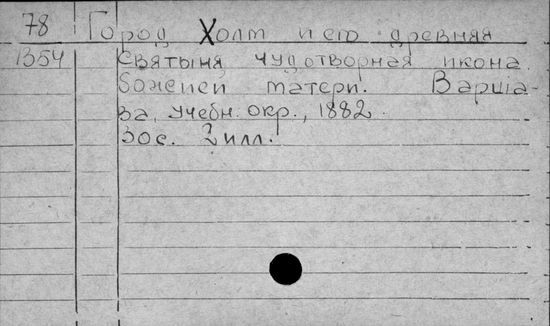 78 Город Холм и его древняя
1354 святыня, чудотворная икона
божией матери. Варша-
ва, учебн. окр., 1882.
30 с. 2 илл.